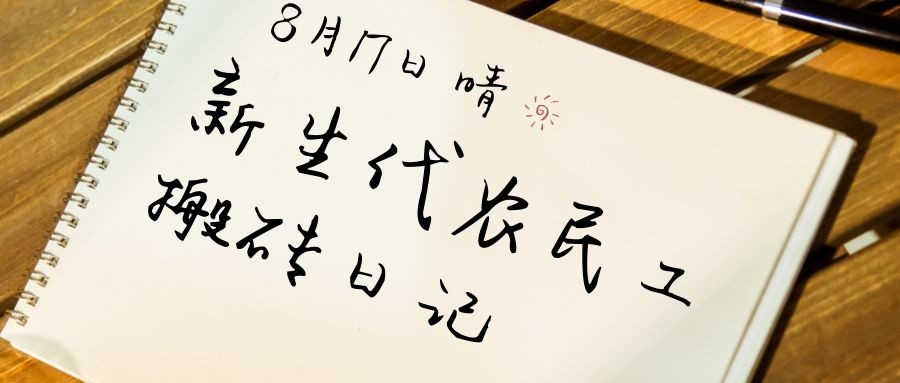 8月17日 晴
新生代农民工
搬砖日记